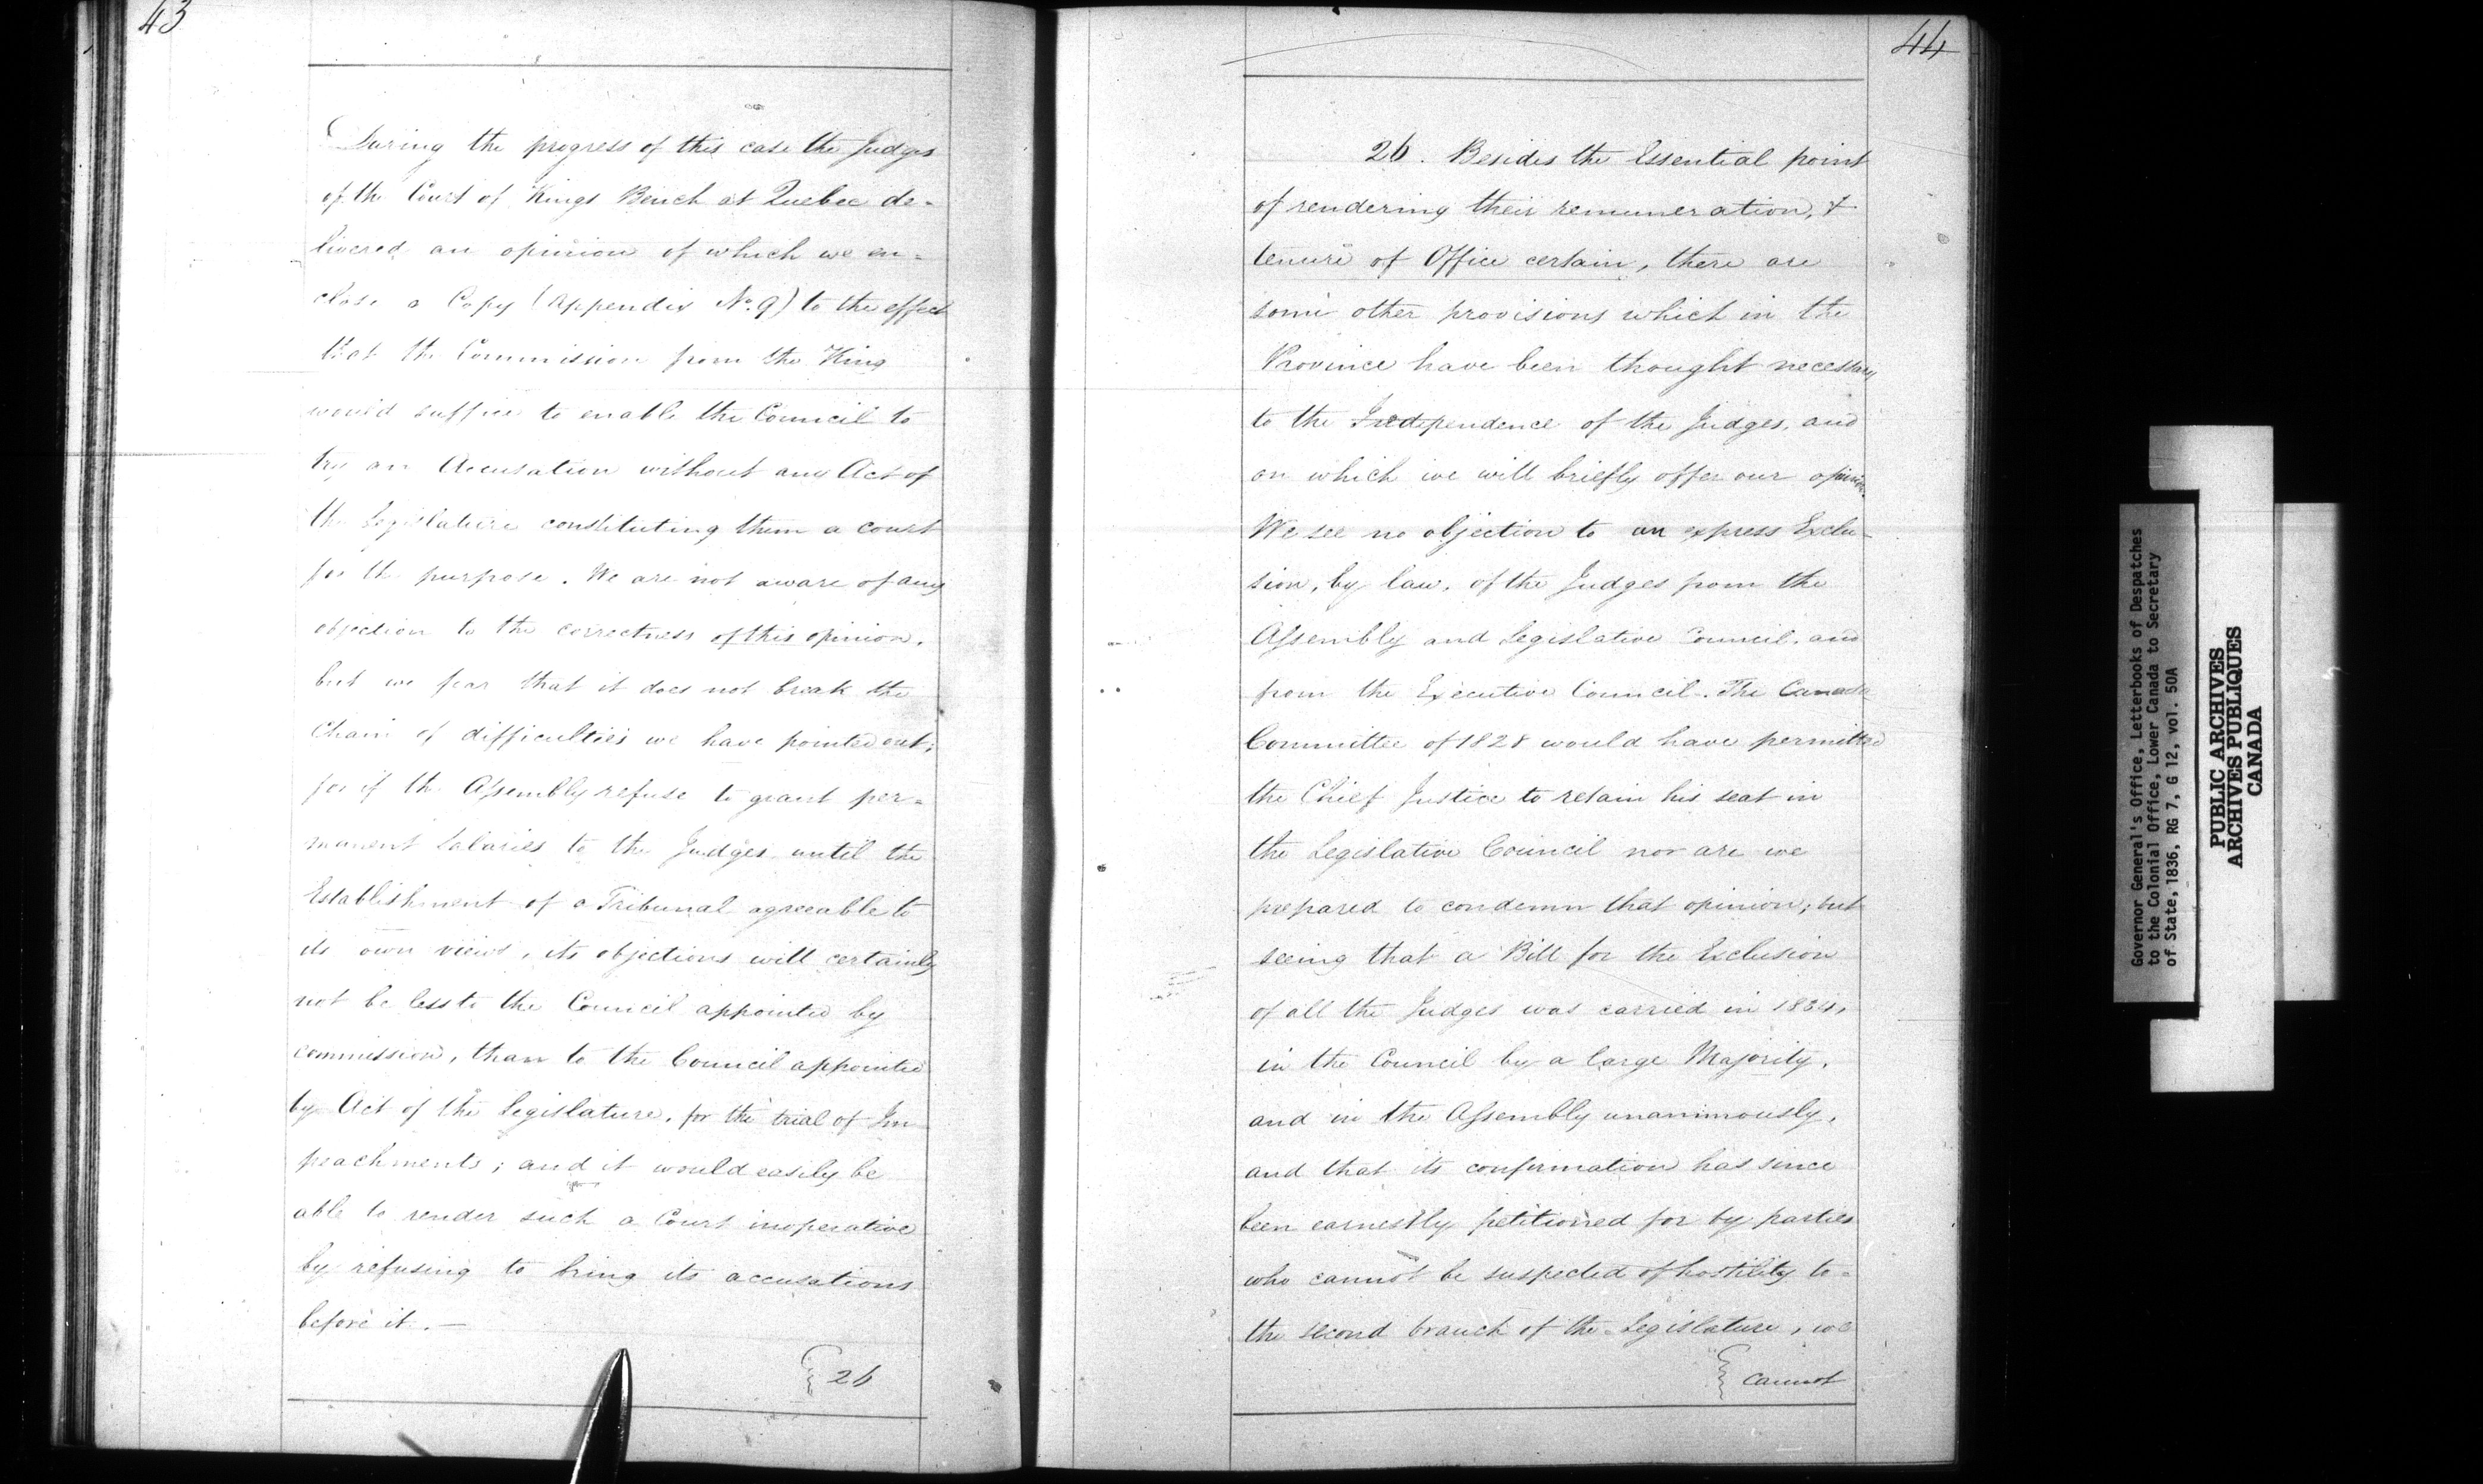 43
During the progress of this case the Judges
of the Court of Kings Bench at Quebec de-
livered an opinion of which we en-
close a Copy (Appendix No. 9) to the effect
that the Commission from the King
would suffice to enable the Council to
try an Accusation without any Act of
the Legislature constituting them a court
for the purpose. We are not aware of any
objection to the correctness of this opinion,
but we fear that it does not break the
Chain of difficulties we have pointed out;
for if the Assembly refuse to grant per-
manent Salaries to the Judges until the
Establishment of a Tribunal agreeable to
its own views, its objections will certainly
not be less to the Council appointed by
commission, than to the Council appointed
by Act of the Legislature, for the trial of Im
peachments; and it would easily be
able to render such a Court inoperative
by refusing to bring its accusations
before it. —
26
44
26. Besides the Essential point
of rendering their remuneration, &
tenure of Office certain, there are
some other provisions which in the
Province have been thought necessary
to the Independence of the Judges, and
on which we will briefly offer our opinion.
We see no objection to an express Exclu-
sion, by law, of the Judges from the
Assembly and Legislative Council, and
from the Executive Council. The Canada
Committee of 1828 would have permitted
the Chief Justice to retain his seat in
the Legislative Council nor are we
prepared to condemn that opinion; but
seeing that a Bill for the Exclusion
of all the Judges was carried in 1834,
in the Council by a large Majority,
and in the Assembly unanimously,
and that its confirmation has since
been earnestly petitioned for by parties
who cannot be suspected of hostility to-
the second branch of the Legislature, we
cannot
Governor General's Office, Letterbooks of Despatches
to the Colonial Office, Lower Canada to Secretary
of State, 1836, RG 7, G 12, vol. 50A
PUBLIC ARCHIVES
ARCHIVES PUBLIQUES
CANADA